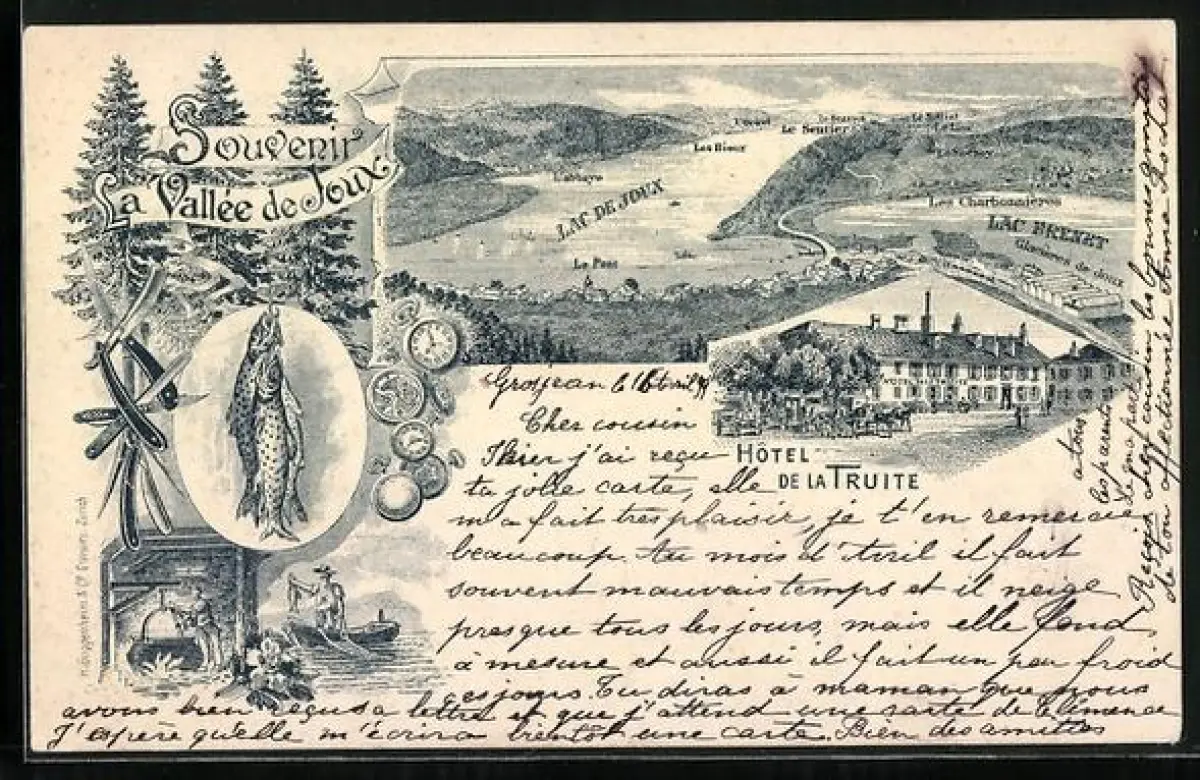 Souvenir
La Vallée de Joux
Le Sentier
Les Bioux
L'Abbaye
LAC DE JOUX
Les Charbonnières
LAC BRENET
Glacières de Joux
Le Pont
HÔTEL
DE LA TRUITE
Grosjean
Cher cousin
Hier j'ai reçu
ta jolie carte, elle
m'a fait très plaisir, je t'en remercie
beaucoup. Au mois d'Avril il fait
souvent mauvais temps et il neige
presque tous les jours, mais elle fond
à mesure et aussi il fait un peu froid
ces jours. Tu diras à maman que nous
avons bien reçu sa lettre et que j'attend une carte de Clémence
J'espère qu'elle m'écrira bientôt une carte. Bien des amitiés
à tous
les parents
de ma part
Reçois cher cousin les bonnes amitiés
de ton affectionnée Anna Rochat